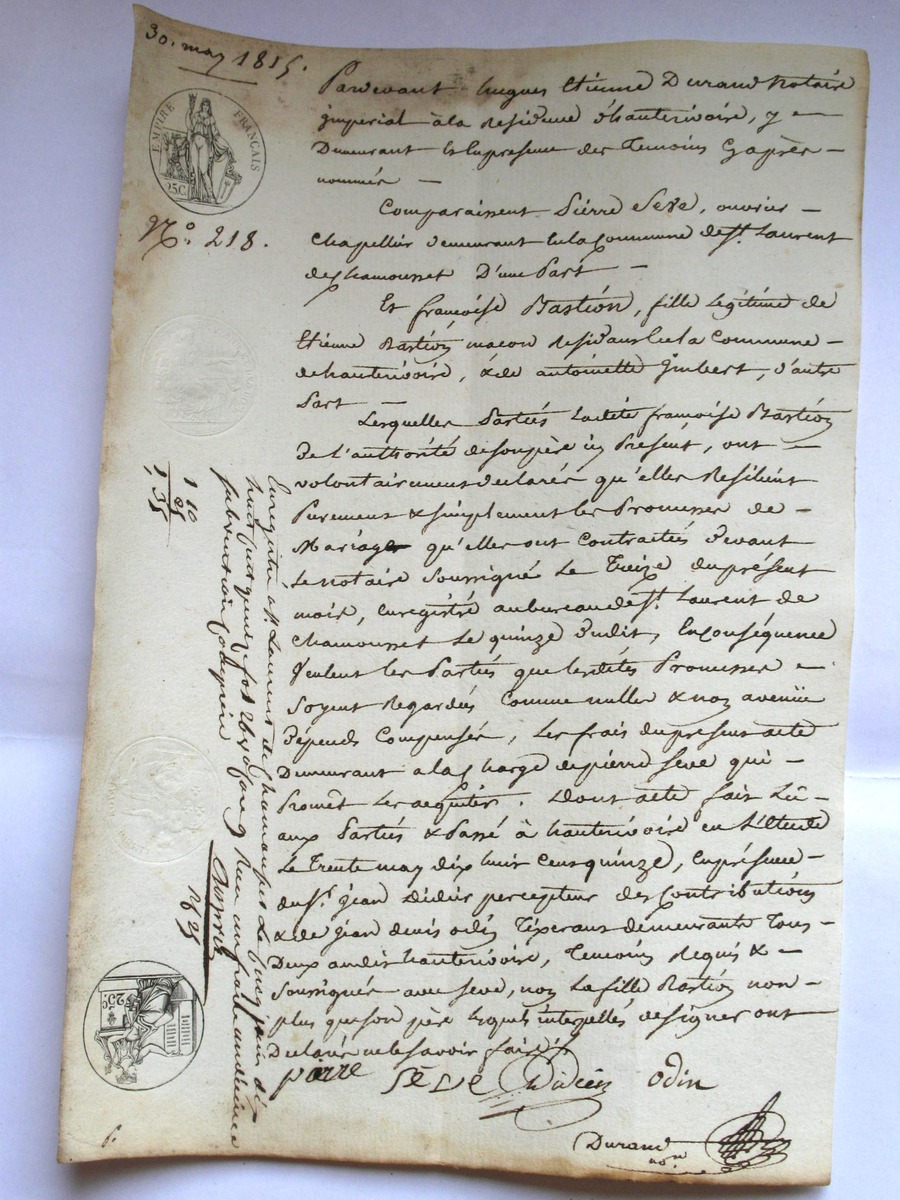 30. may 1815.
EMPIRE FRANÇAIS
25C.
N.º 218.
Pardevant hugues Etienne Durand Notaire
jmperial à la Residence d'hauterivoire, y
Demeurant & En presence des Temoins Cy après
nommés
Comparaissent Pierre Seve, ouvrier
Chapellier demeurant En la Commune de St. Laurent
de Chamousset D'une Part
Et françoise Bastion, fille Legitime de
Etienne Bastion maçon Residant En la Commune
de hauterivoire, & de antoinette jmbert, d'autre
Part
Lesquelles Parties Ladite françoise Bastion
De l'authorité de son père ici Present, ont
volontairement declaré qu'elles Resilient
Purement & simplement les Promesses de
Mariage qu'elles ont Contractées devant
Le notaire soussigné Le Treize du présent
mois, Enregistré au bureau de St. Laurent de
Chamousset Le quinze dudit, En Conséquence
Veulent les Parties que lesdites Promesses
soyent Regardées Comme nulles & non avenüe
Dépends Compensés, Les frais du present acte
Demeurant à la Charge de pierre seve qui
Promêt les acquitér. Dont acte fait Lû
aux Parties & Passé à hauterivoire en L'Etude
Le Trente may dix huit Cent quinze, En présence
du Sr. jean Didier percepteur des Contributions
& de jean denis odin Tisserant demeurants Tous
Deux audit hauterivoire, Temoins Requis &
soussignés avec seve, non La fille Bastion non
plus que son père Lesquels interpellés de signer ont
Declaré ne le savoir faire
pierre SEVE Didier odin
Durand
nore.
1 10
25
1, 35
Enregistré à St. Laurent de Chamousset Le juin
huit cent quinze fos 26 Reçu un franc
subvention Comprise
25C.